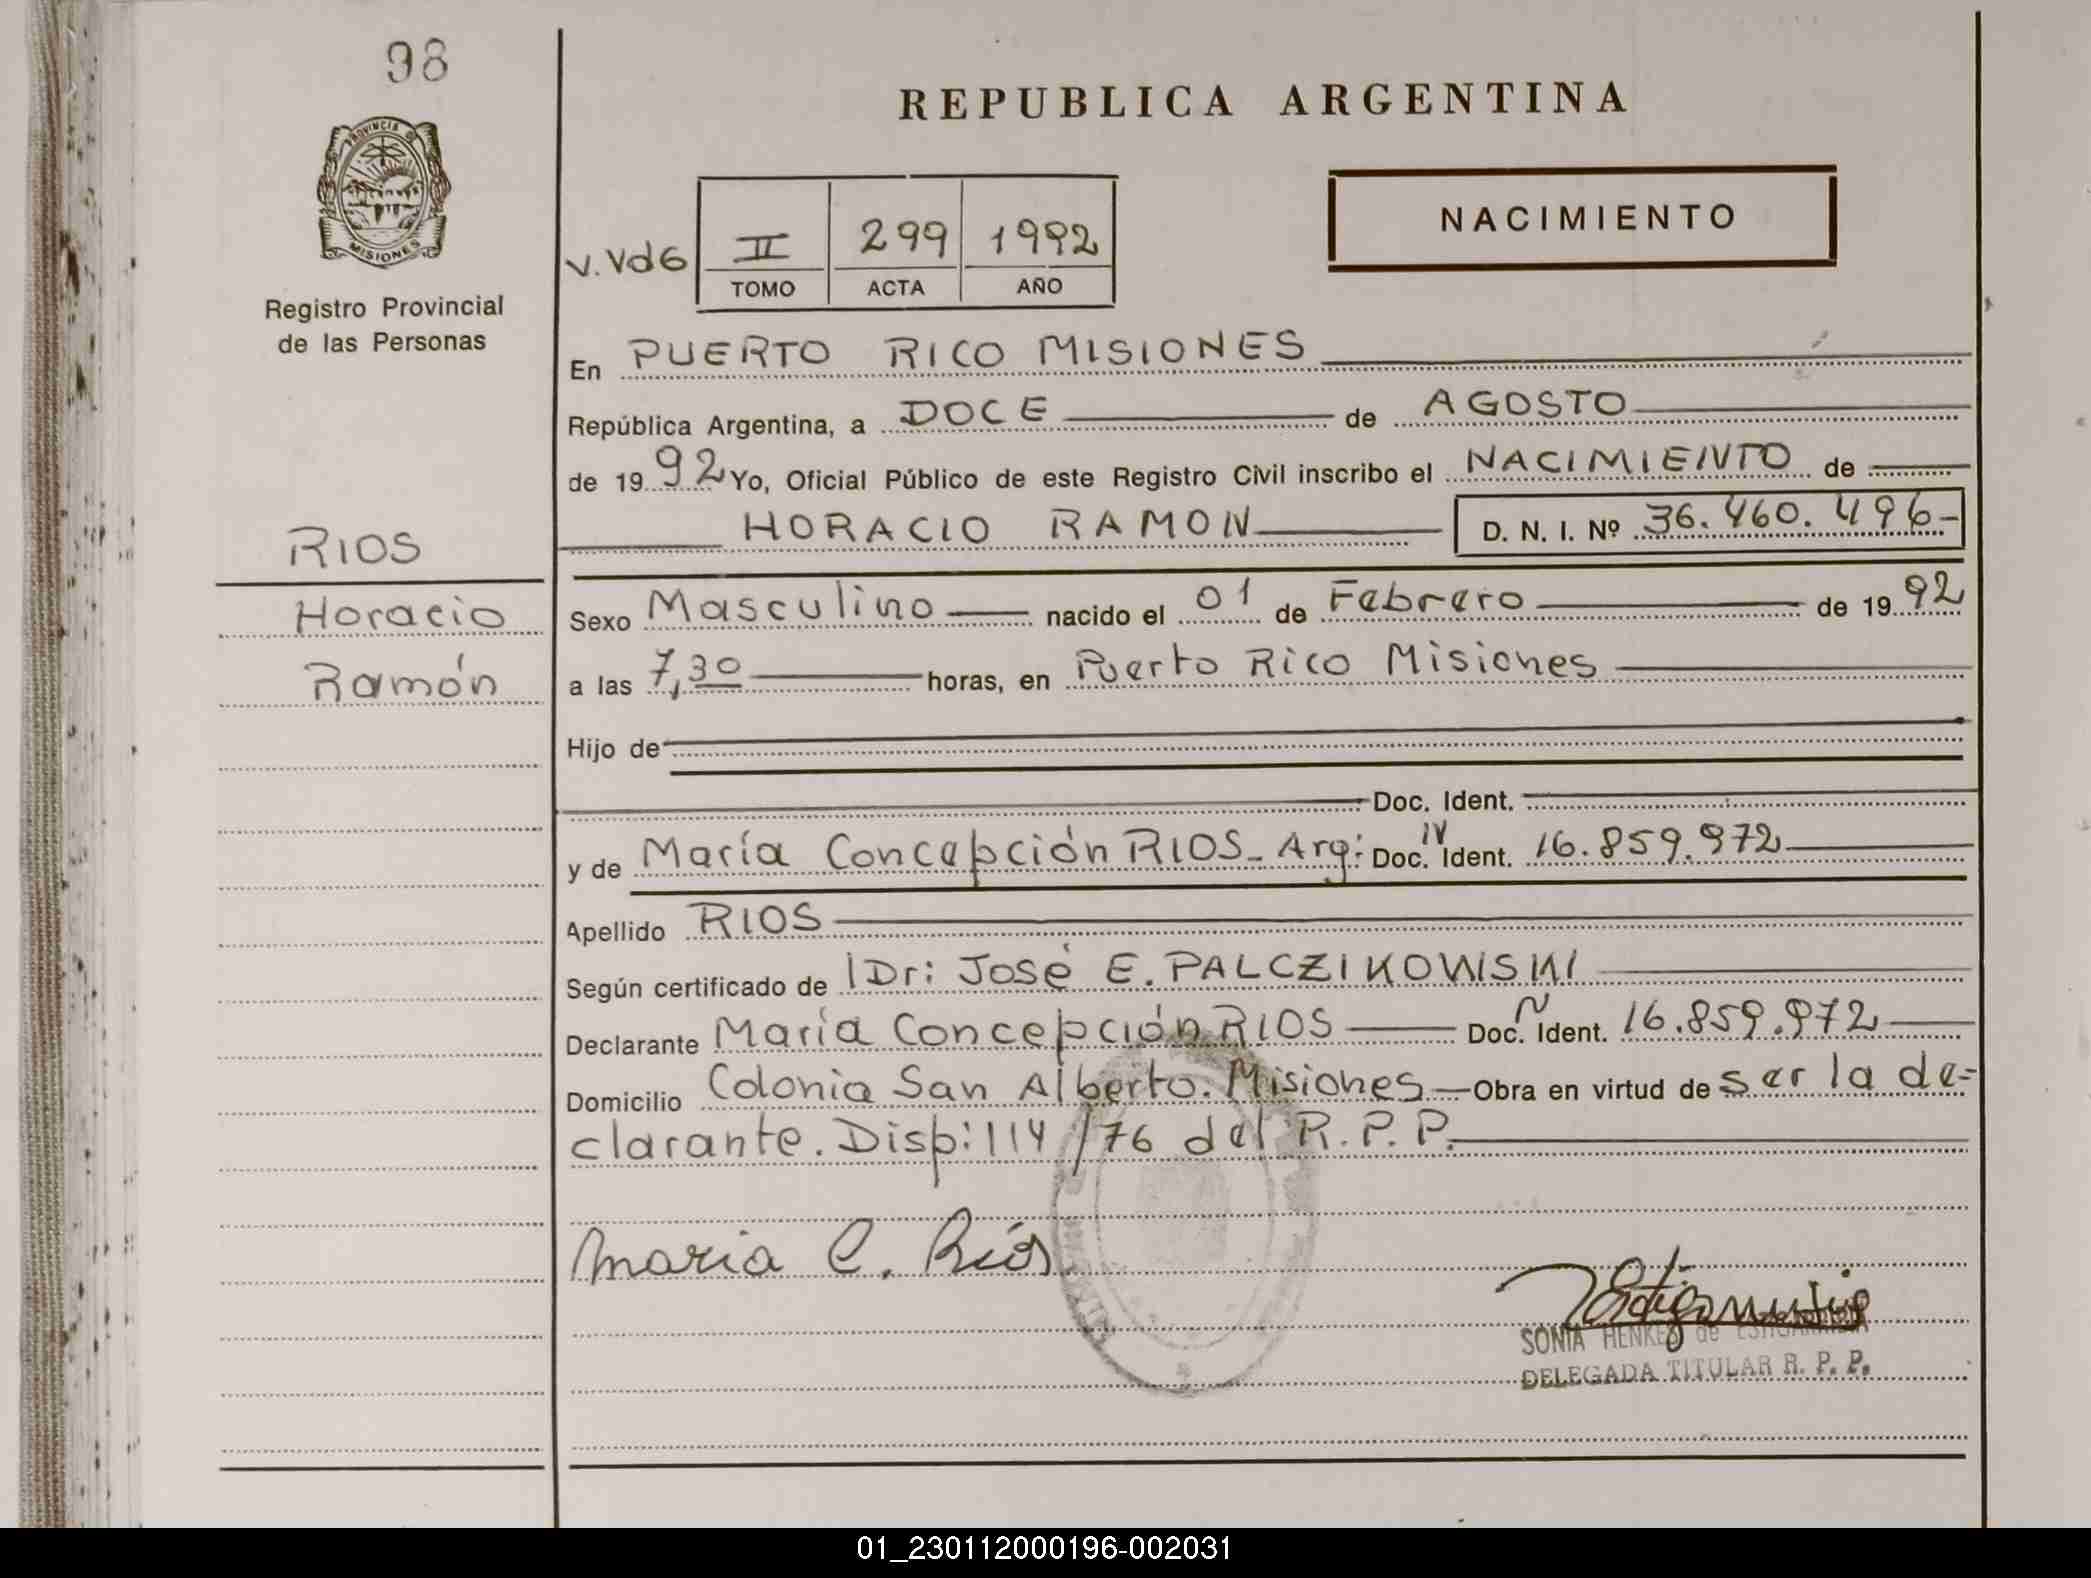 98
REPUBLICA ARGENTINA
PROVINCIA DE
MISIONES
Registro Provincial
de las Personas
V. Vd6 II 299 1992
TOMO ACTA AÑO
NACIMIENTO
En PUERTO RICO MISIONES
República Argentina, a DOCE de AGOSTO
de 1992 Yo, Oficial Público de este Registro Civil inscribo el NACIMIENTO de
HORACIO RAMON D. N. I. Nº 36.460.496-
RIOS
Horacio
Ramón
Sexo Masculino nacido el 01 de Febrero de 1992
a las 7,30 horas, en Puerto Rico Misiones
Hijo de
Doc. Ident.
y de María Concepción RIOS- Arg: Doc. Ident. 16.859.972
Apellido RIOS
Según certificado de Dr: José E. PALCZIKOWSKI
Declarante María Concepción RIOS Doc. Ident. 16.859.972
Domicilio Colonia San Alberto. Misiones - Obra en virtud de ser la de=
clarante. Disp: 114/76 del R.P.P.
Maria C. Ríos
SONIA HENKES de ESTIGARRIBIA
DELEGADA TITULAR R. P. P.
01_230112000196-002031